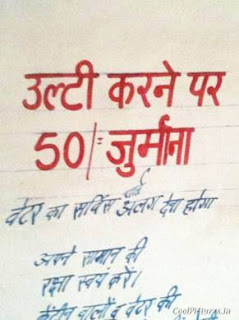 उल्टी करने पर
50/= जुर्माना
वेटर का सर्विस चार्ज अलग देना होगा
अपने सामान की
रक्षा स्वयं करें।
वेटर की
CoolPictures.in